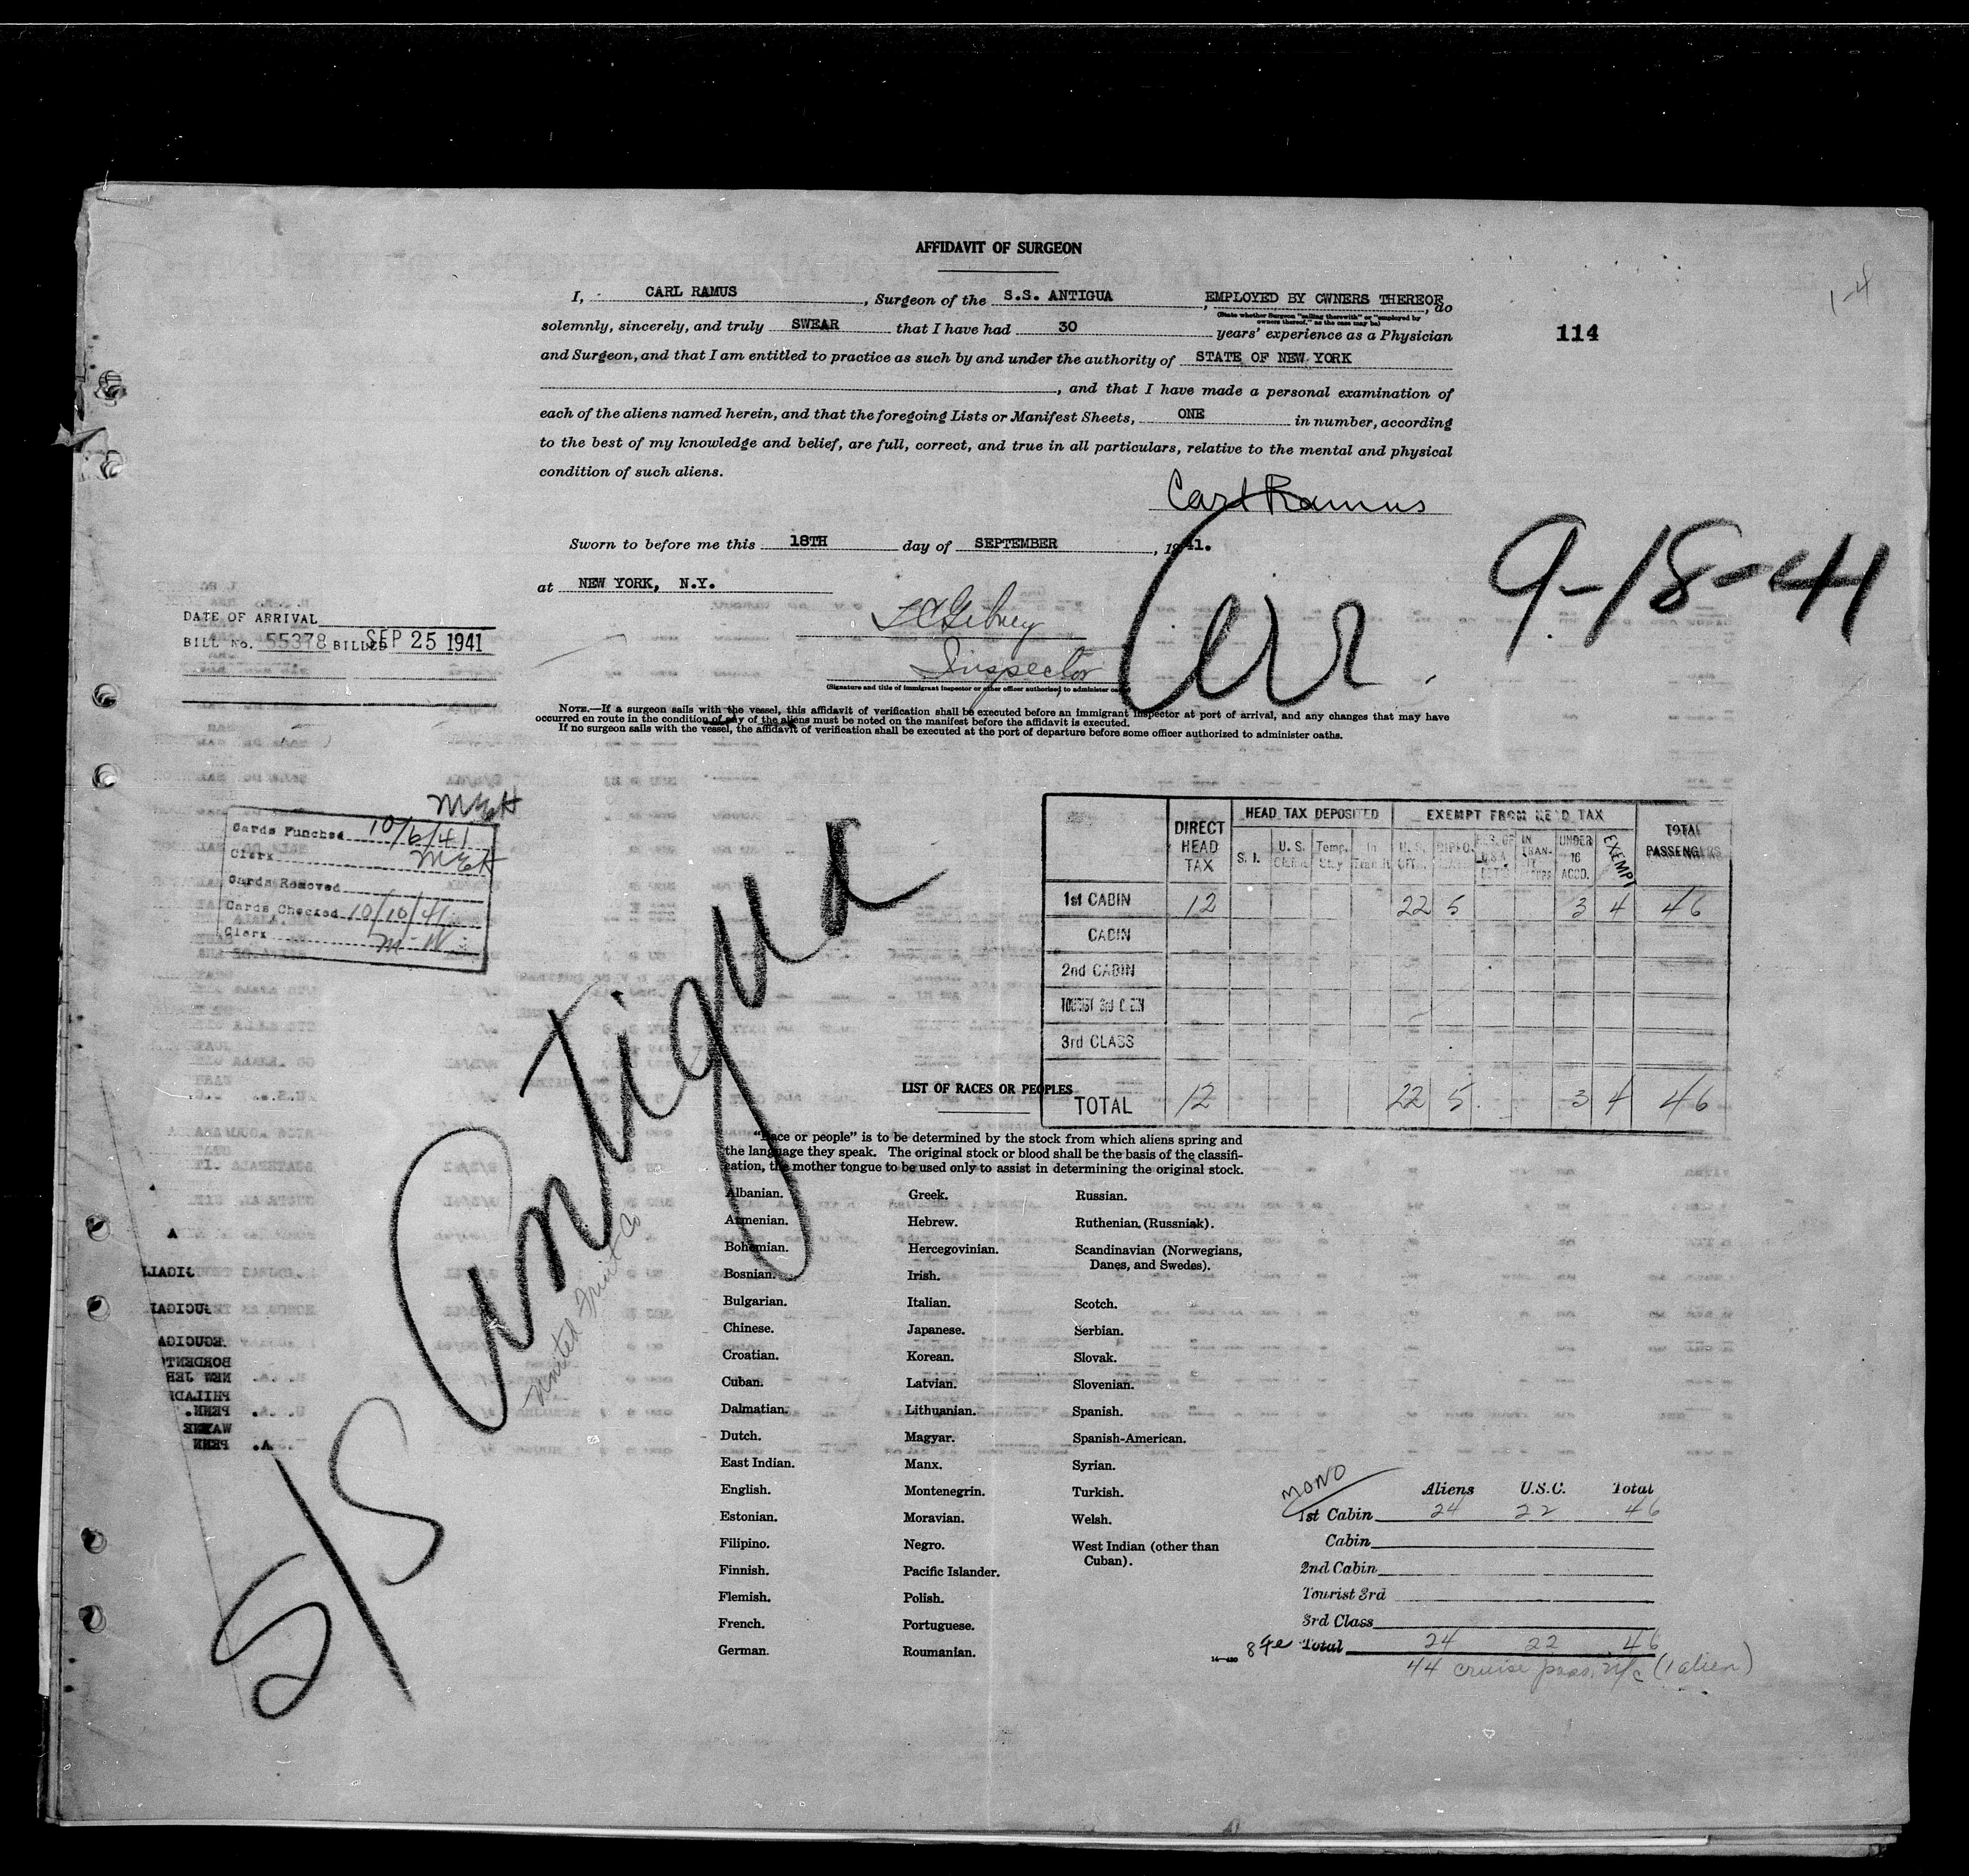 AFFIDAVIT OF SURGEON
1-4
I, CARL RAMUS, Surgeon of the S.S. ANTIGUA, EMPLOYED BY OWNERS THEREOF, do
(State whether Surgeon "sailing therewith" or "employed by
owners thereof," as the case may be)
114
solemnly, sincerely, and truly SWEAR that I have had 30 years' experience as a Physician
and Surgeon, and that I am entitled to practice as such by and under the authority of STATE OF NEW YORK
, and that I have made a personal examination of
each of the aliens named herein, and that the foregoing Lists or Manifest Sheets, ONE in number, according
to the best of my knowledge and belief, are full, correct, and true in all particulars, relative to the mental and physical
condition of such aliens.
Carl Ramus
Sworn to before me this 18TH day of SEPTEMBER, 1941.
9-18-41
at NEW YORK, N.Y.
Inspector
(Signature and title of immigrant inspector or other officer authorized to administer oaths)
DATE OF ARRIVAL
BILL No. 55378 BILLED SEP 25 1941
NOTE.—If a surgeon sails with the vessel, this affidavit of verification shall be executed before an immigrant inspector at port of arrival, and any changes that may have
occurred en route in the condition of any of the aliens must be noted on the manifest before the affidavit is executed.
If no surgeon sails with the vessel, the affidavit of verification shall be executed at the port of departure before some officer authorized to administer oaths.
MEH
Cards Punched 10/6/41
Clerk MEH
Cards Removed
Cards Checked 10/10/41
Clerk M-W
DIRECT HEAD TAX
HEAD TAX DEPOSITED
EXEMPT FROM HEAD TAX
TOTAL PASSENGERS
S. I. U. S. Temp. Stay In Transit U. S. UNDER 16 ACCD. EXEMPT
1st CABIN 12 22 5 3 4 46
CABIN
2nd CABIN
TOURIST 3rd CABIN
3rd CLASS
TOTAL 12 22 5 3 4 46
S/S Antigua
United Fruit Co
LIST OF RACES OR PEOPLES
"Race or people" is to be determined by the stock from which aliens spring and
the language they speak. The original stock or blood shall be the basis of the classifi-
cation, the mother tongue to be used only to assist in determining the original stock.
Albanian.
Armenian.
Bohemian.
Bosnian.
Bulgarian.
Chinese.
Croatian.
Cuban.
Dalmatian.
Dutch.
East Indian.
English.
Estonian.
Filipino.
Finnish.
Flemish.
French.
German.
Greek.
Hebrew.
Hercegovinian.
Irish.
Italian.
Japanese.
Korean.
Latvian.
Lithuanian.
Magyar.
Manx.
Montenegrin.
Moravian.
Negro.
Pacific Islander.
Polish.
Portuguese.
Roumanian.
Russian.
Ruthenian (Russniak).
Scandinavian (Norwegians,
Danes, and Swedes).
Scotch.
Serbian.
Slovak.
Slovenian.
Spanish.
Spanish-American.
Syrian.
Turkish.
Welsh.
West Indian (other than
Cuban).
MONO
Aliens U.S.C. Total
1st Cabin 24 22 46
Cabin
2nd Cabin
Tourist 3rd
3rd Class
Total 24 22 46
44 cruise pass. (1 alien)